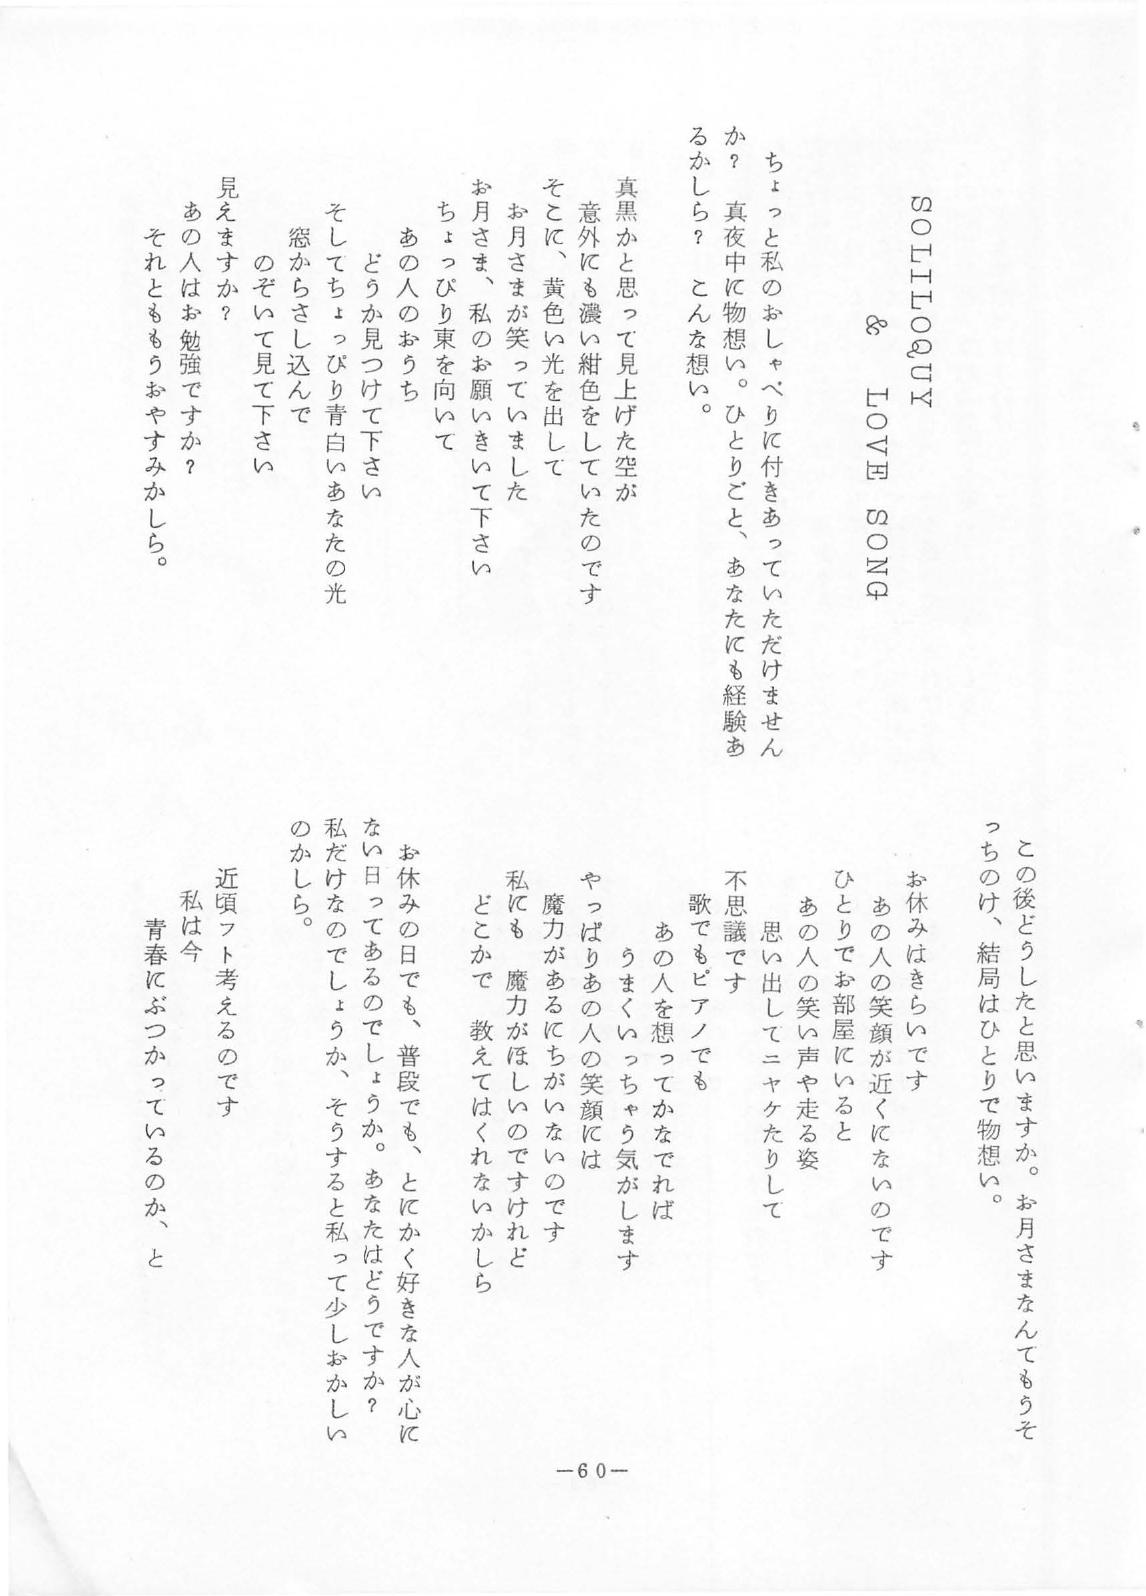 SOLILOQUY
& LOVE SONG
ちょっと私のおしゃべりに付きあっていただけません
か？　真夜中に物想い。ひとりごと、あなたにも経験あ
るかしら？　こんな想い。
真黒かと思って見上げた空が
意外にも濃い紺色をしていたのです
そこに、黄色い光を出して
お月さまが笑っていました
お月さま、私のお願いきいて下さい
ちょっぴり東を向いて
あの人のおうち
どうか見つけて下さい
そしてちょっぴり青白いあなたの光
窓からさし込んで
のぞいて見て下さい
見えますか？
あの人はお勉強ですか？
それとももうおやすみかしら。
この後どうしたと思いますか。お月さまなんてもうそ
っちのけ、結局はひとりで物想い。
お休みはきらいです
あの人の笑顔が近くにないのです
ひとりでお部屋にいると
あの人の笑い声や走る姿
思い出してニャケたりして
不思議です
歌でもピアノでも
あの人を想ってかなでれば
うまくいっちゃう気がします
やっぱりあの人の笑顔には
魔力があるにちがいないのです
私にも　魔力がほしいのですけれど
どこかで　教えてはくれないかしら
お休みの日でも、普段でも、とにかく好きな人が心に
ない日ってあるのでしょうか。あなたはどうですか？
私だけなのでしょうか、そうすると私って少しおかしい
のかしら。
近頃フト考えるのです
私は今
青春にぶつかっているのか、と
―60―